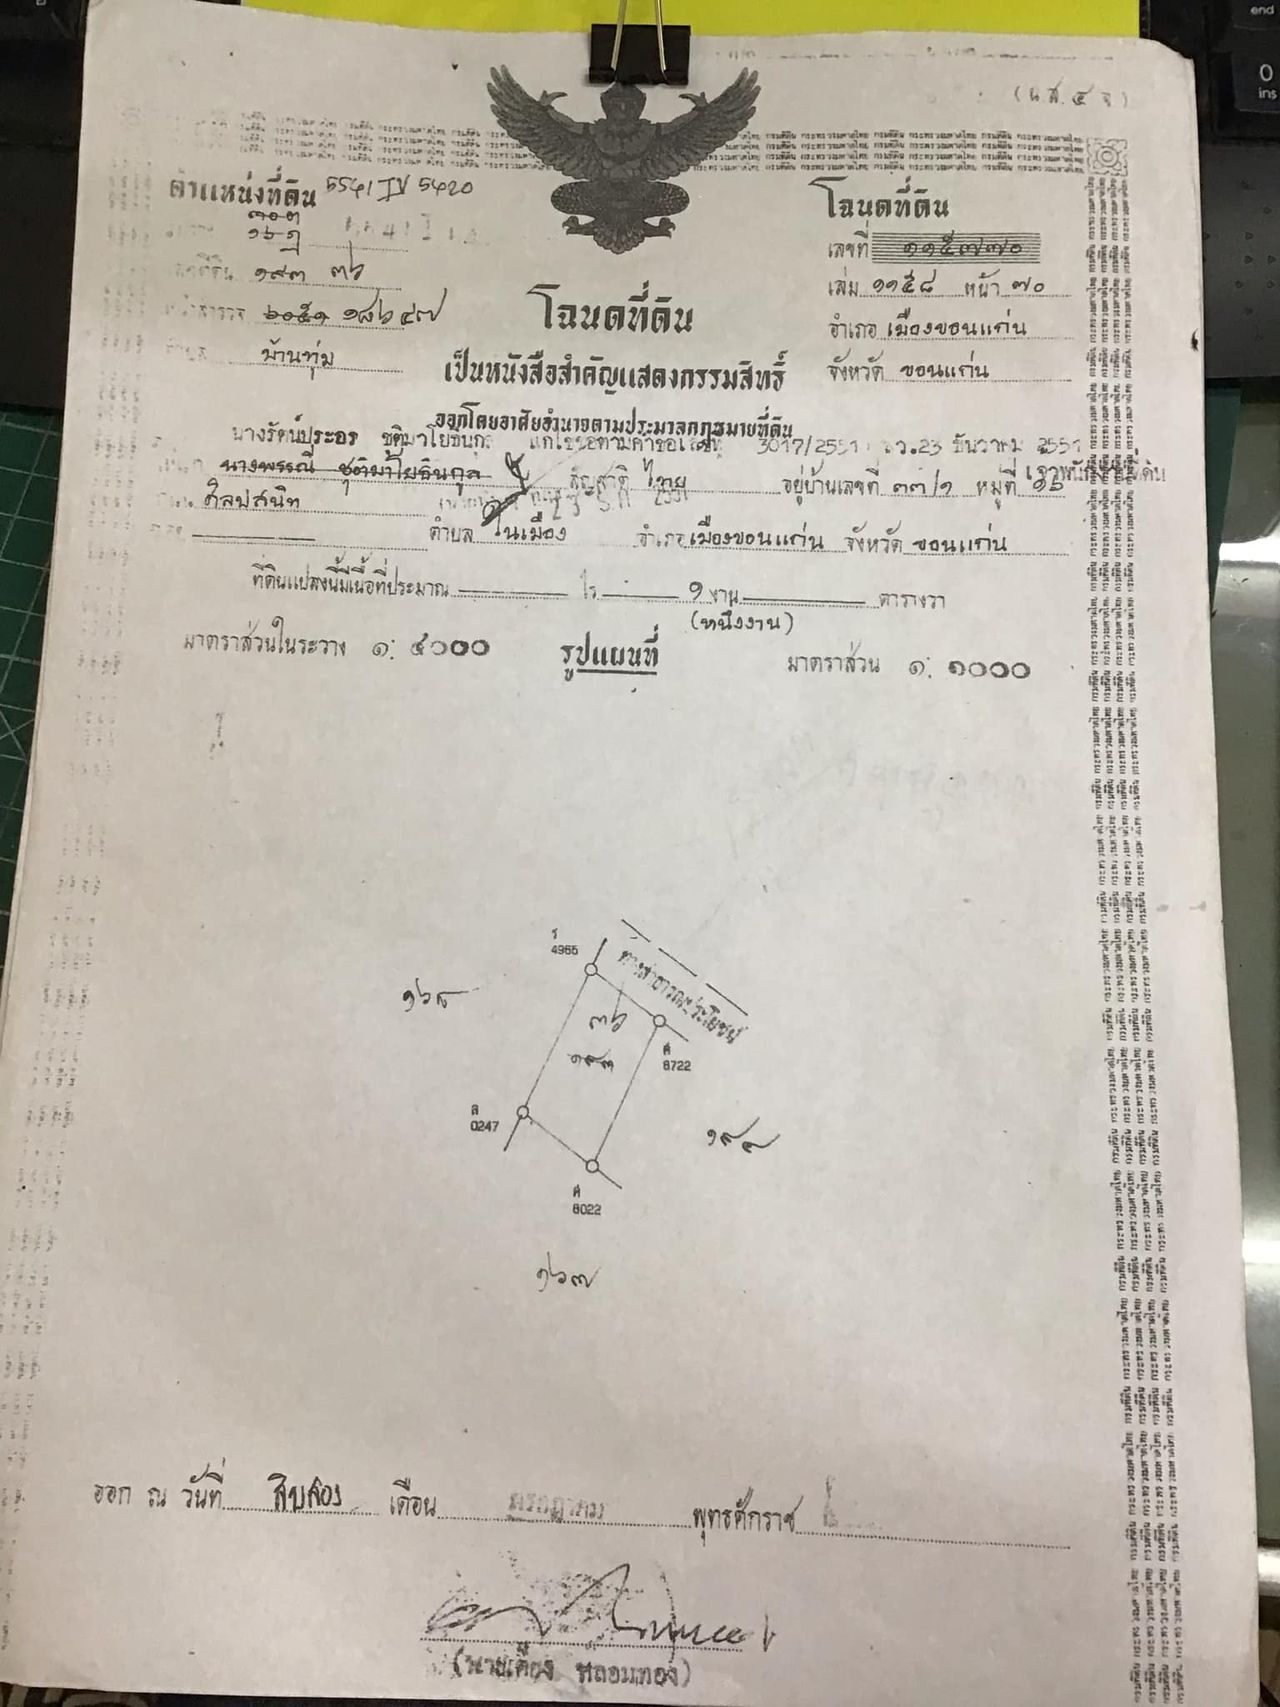 (น.ส. ๔ จ)
ตำแหน่งที่ดิน 5541 IV 5420
โฉนดที่ดิน
เลขที่ ๑๑๕๗๗๐
ที่ดิน ๑๙๓ ๓๖
เล่ม ๑๑๕๘ หน้า ๗๐
โฉนดที่ดิน
๑๘๖๔๗
อำเภอ เมืองขอนแก่น
บ้านทุ่ม
เป็นหนังสือสำคัญแสดงกรรมสิทธิ์
จังหวัด ขอนแก่น
ออกโดยอาศัยอำนาจตามประมวลกฎหมายที่ดิน
นางรัตน์ประอร ชุติมาโยธินกุล แก้ไขชื่อตามคำขอ 3017/2551 ลว.23 ธันวาคม 2551
นางพรรณี ชุติมาโยธินกุล สัญชาติ ไทย อยู่บ้านเลขที่ ๓๓/๑ หมู่ที่ ๑๖
ศิลปสนิท
ตำบล ในเมือง อำเภอ เมืองขอนแก่น จังหวัด ขอนแก่น
ที่ดินแปลงนี้มีเนื้อที่ประมาณ ไร่ ๑ งาน ตารางวา
(หนึ่งงาน)
มาตราส่วนในระวาง ๑: ๔๐๐๐ รูปแผนที่ มาตราส่วน ๑: ๑๐๐๐
4965
ทางสาธารณประโยชน์
๑๖๘
๓๖
๑๙๓
8722
0247
๑๙๔
8022
๑๖๗
ออก ณ วันที่ สิบสอง เดือน กรกฎาคม พุทธศักราช